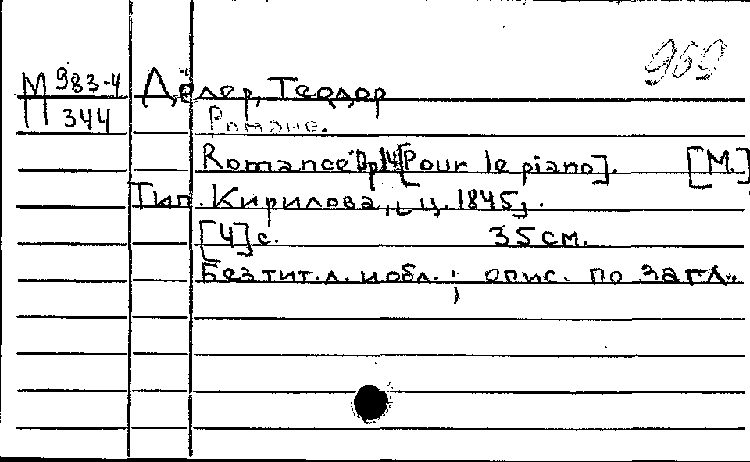 969
М 983-4 Дёлер, Теодор
П 344 Романс.
Romance Op 14 [Pour le piano]. [М.]
Тип. Кирилова, [ц. 1845].
[4] с. 35 см.
Без тит. л. и обл.; опис. по загл.